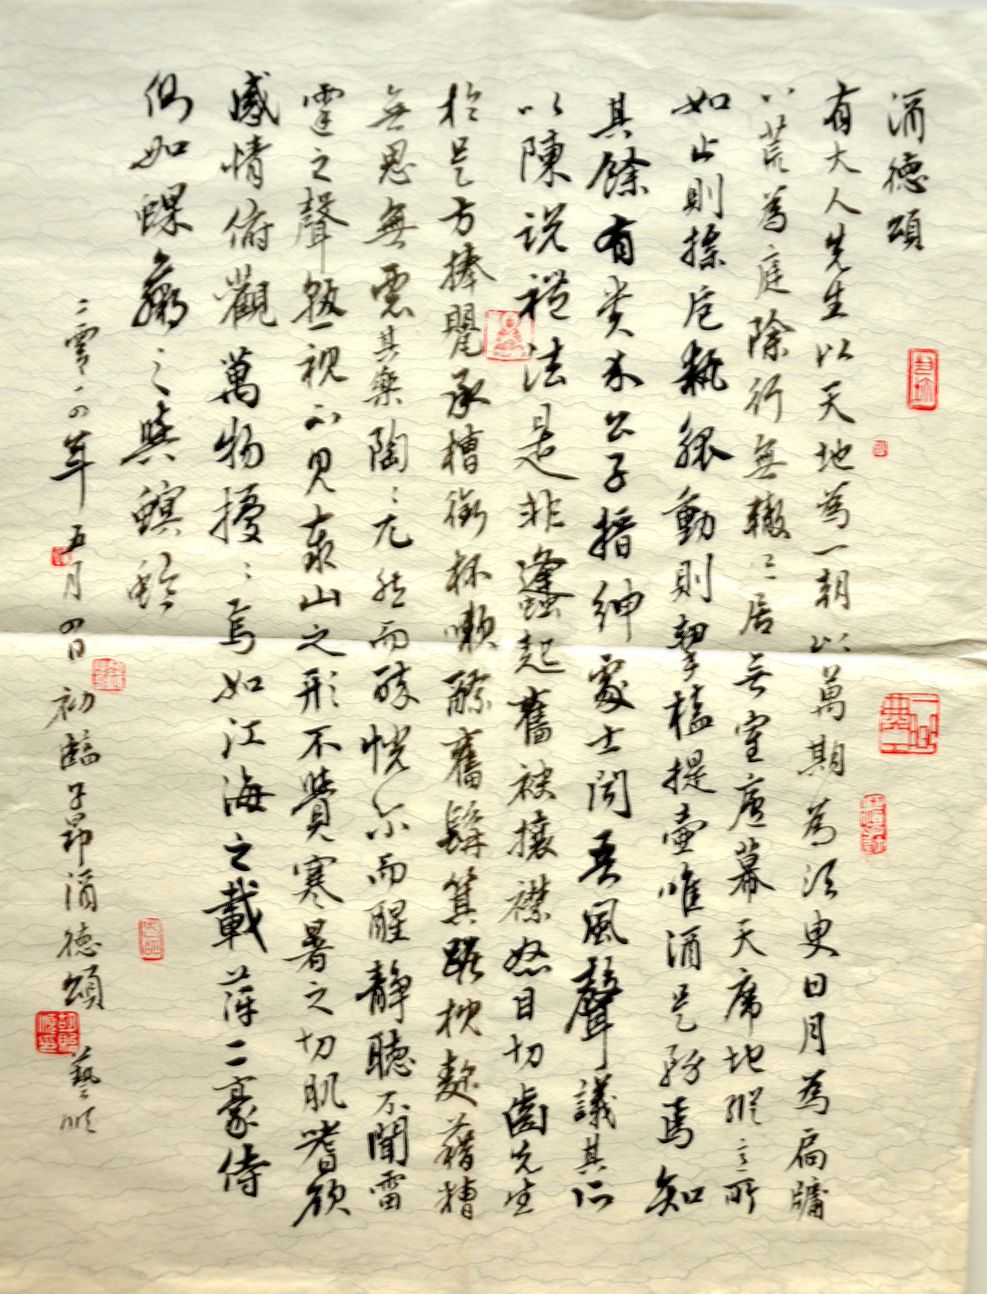 酒德頌
有大人先生以天地為一朝以萬期為須臾日月為扃牖
八荒為庭除行無轍迹居無室廬幕天席地縱意所
如止則操卮執觚動則挈榼提壺唯酒是務焉知
其餘有貴介公子搢紳處士聞吾風聲議其所
以陳說禮法是非蜂起奮袂攘襟怒目切齒先生
於是方捧甖承槽銜杯漱醪奮髯箕踞枕麴藉糟
無思無慮其樂陶〻兀然而醉恍尔而醒靜聽不聞雷
霆之聲孰視不見泰山之形不覺寒暑之切肌嗜欲
感情俯觀萬物擾〻焉如江海之載萍二豪侍
側如蜾蠃之與螟蛉
二零一四年五月四日初臨子昂酒德頌 藝順